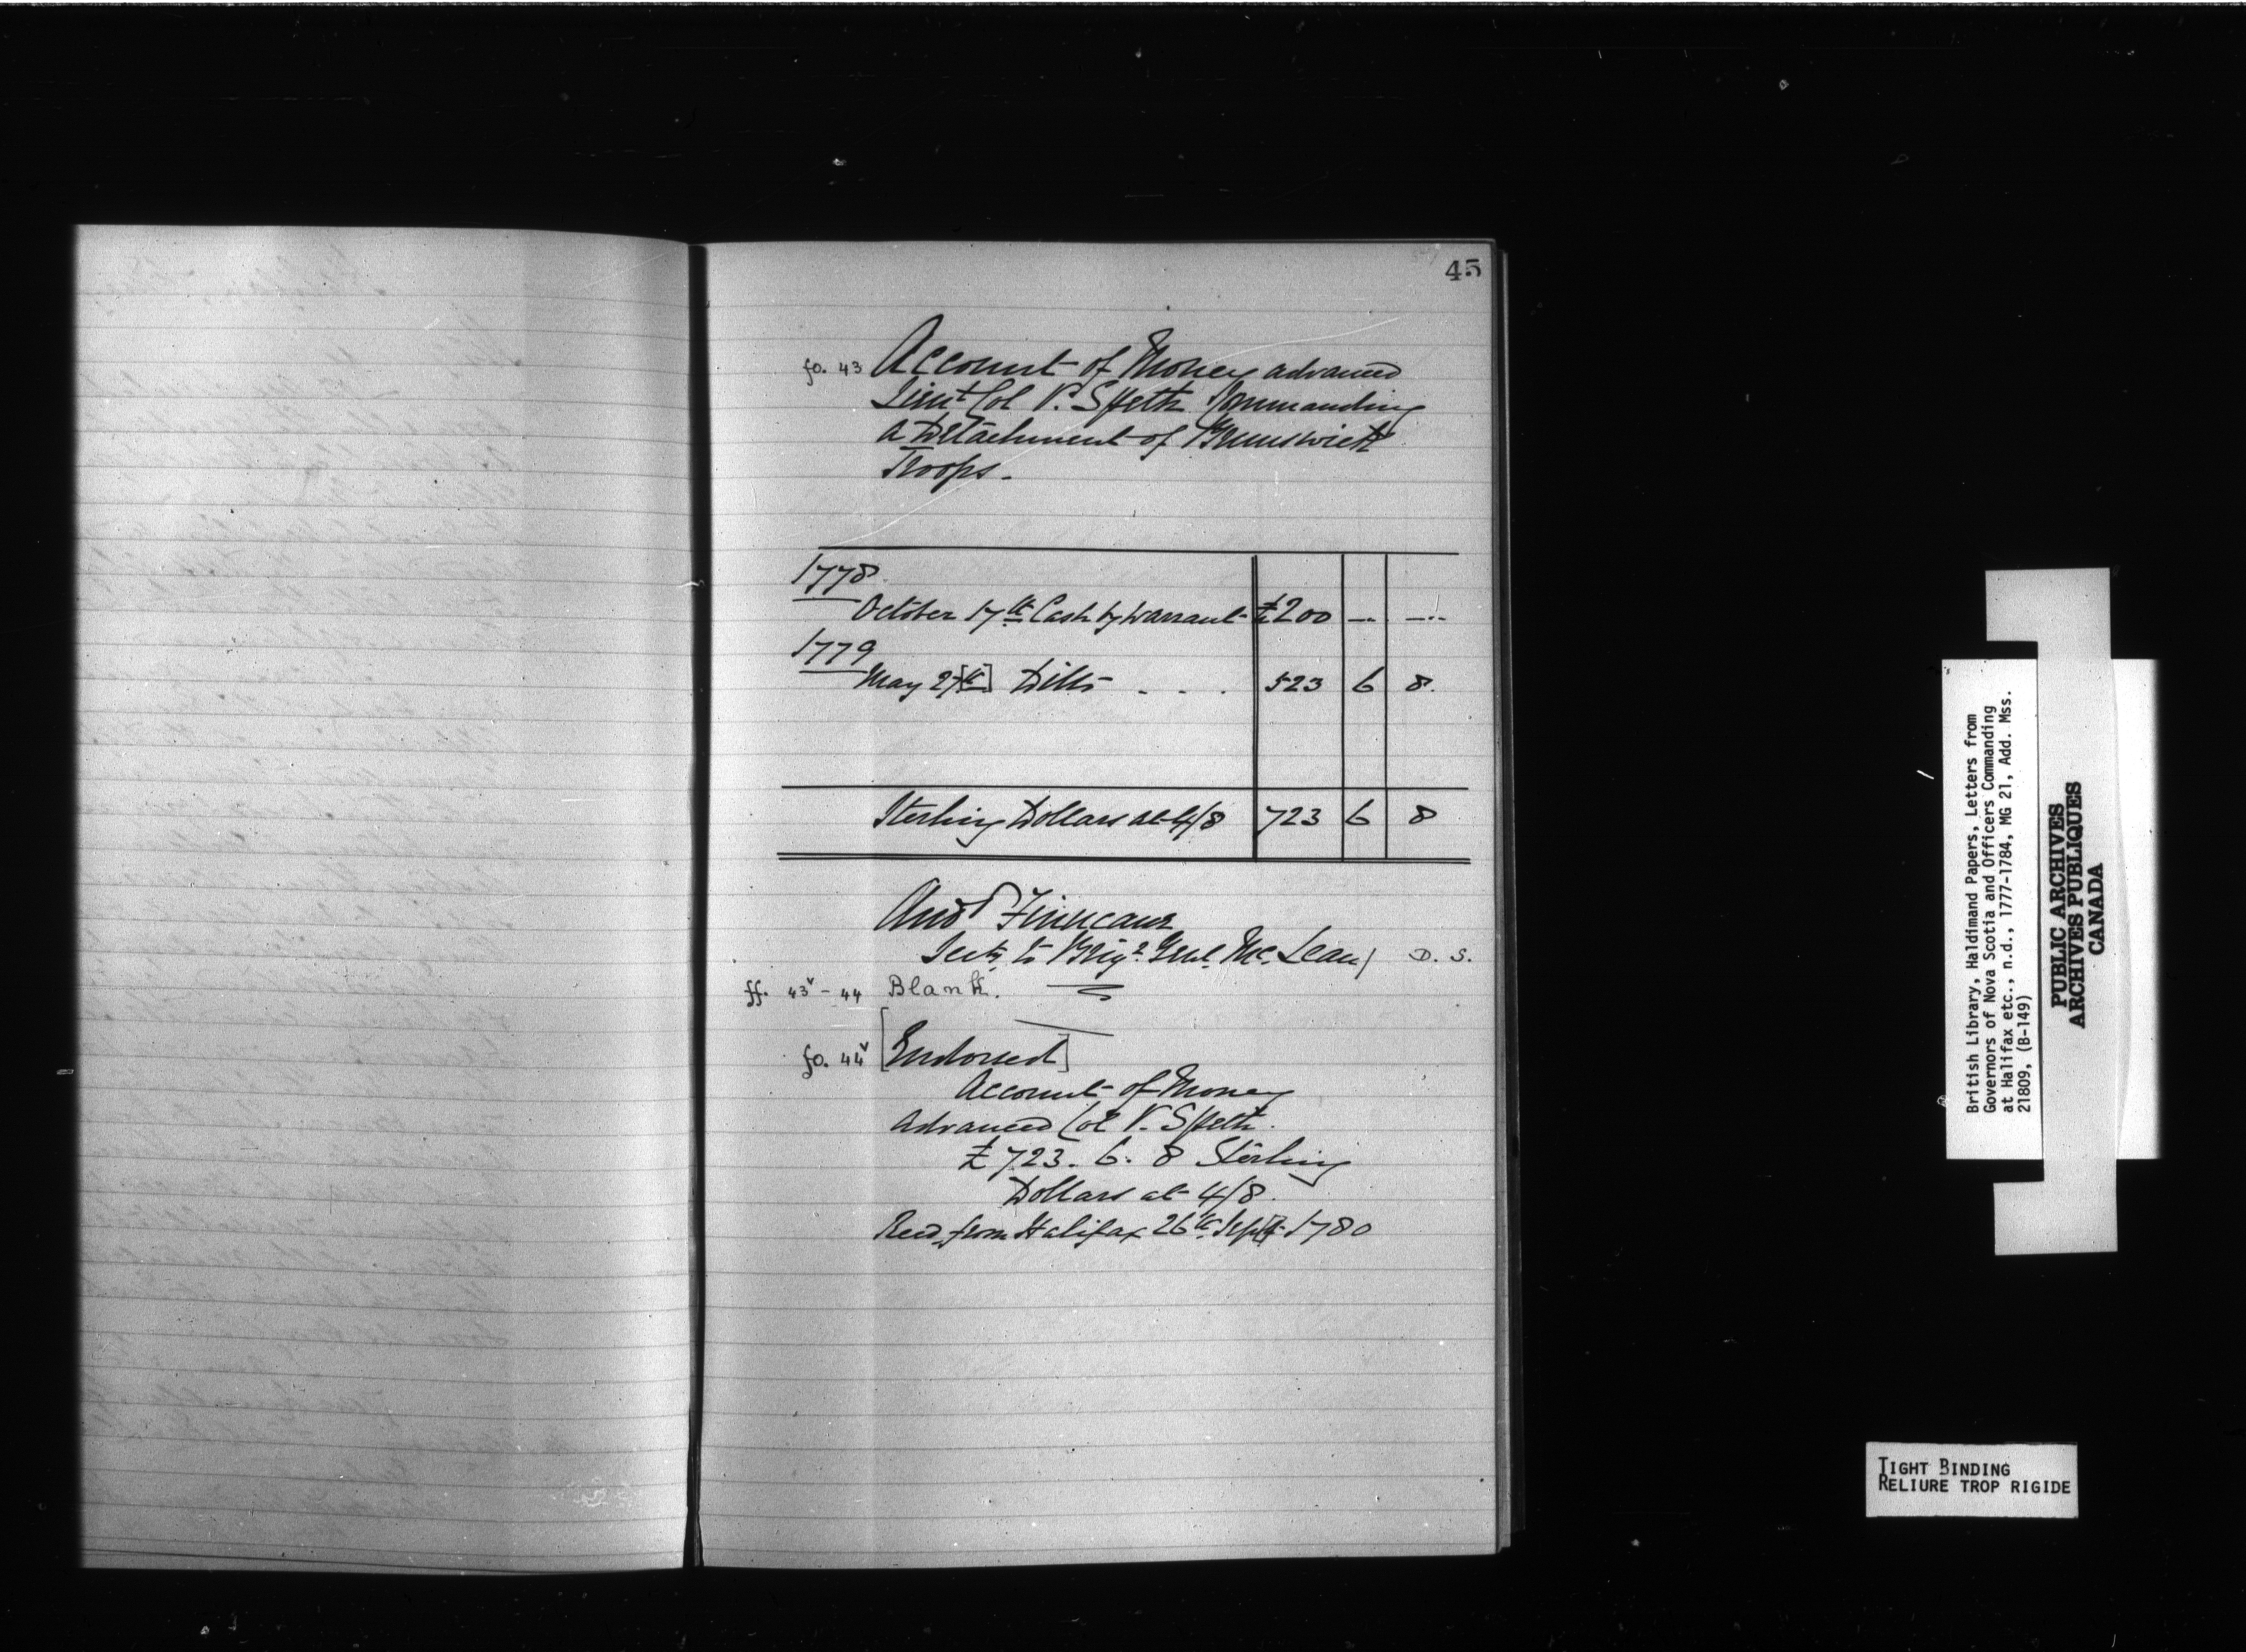 45
fo. 43 Account of Money advanced
Lieut Col V. Speth Commanding
a Detachment of Brunswick
Troops.
1778
October 17th Cash by Warrant £200 — —
1779
May 27[th] Ditto - - - 523 6 8.
Sterling Dollars at 4/8 723 6 8
And Finucane
Secty. to Brigr. Genl. Mc. Lean) D. S.
ff. 43v - 44 Blank.
fo. 44v [Endorsed]
Account of Money
Advanced Col V. Speth.
£723. 6. 8 Sterling
Dollars at 4/8.
Recd. from Halifax 26th Sep[t]. 1780
British Library, Haldimand Papers, Letters from
Governors of Nova Scotia and Officers Commanding
at Halifax etc., n.d., 1777-1784, MG 21, Add. Mss.
21809, (B-149)
PUBLIC ARCHIVES
ARCHIVES PUBLIQUES
CANADA
TIGHT BINDING
RELIURE TROP RIGIDE